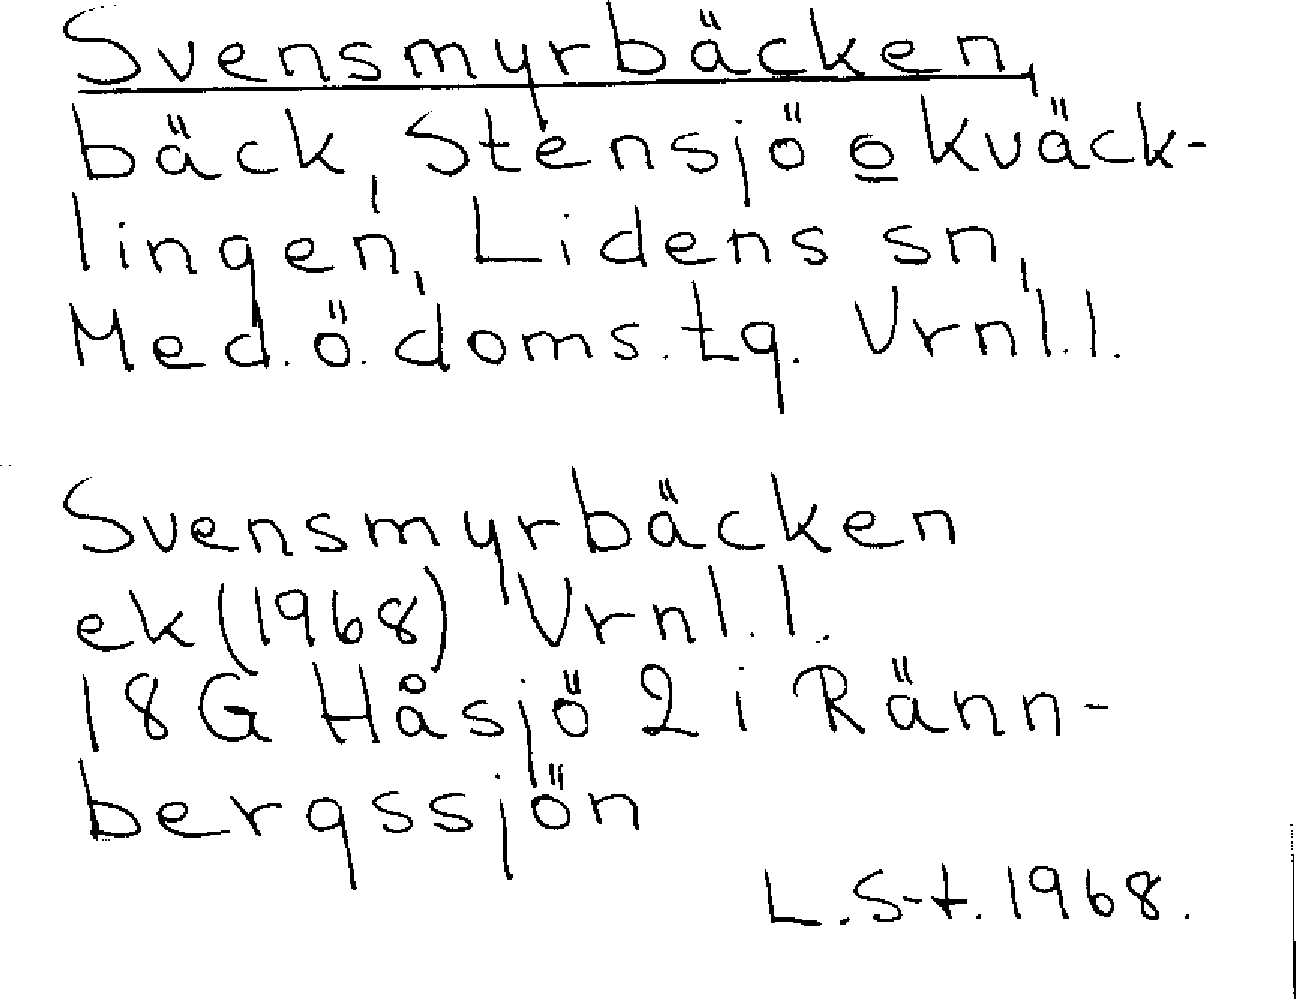 Svensmyrbäcken,
bäck, Stensjö o kväck-
lingen, Lidens sn,
Med. ö. doms. tg. Vrnl. l.
Svensmyrbäcken
ek (1968) Vrnl. l.
18G Håsjö 2 i Ränn-
bergssjön
L. S-t. 1968.